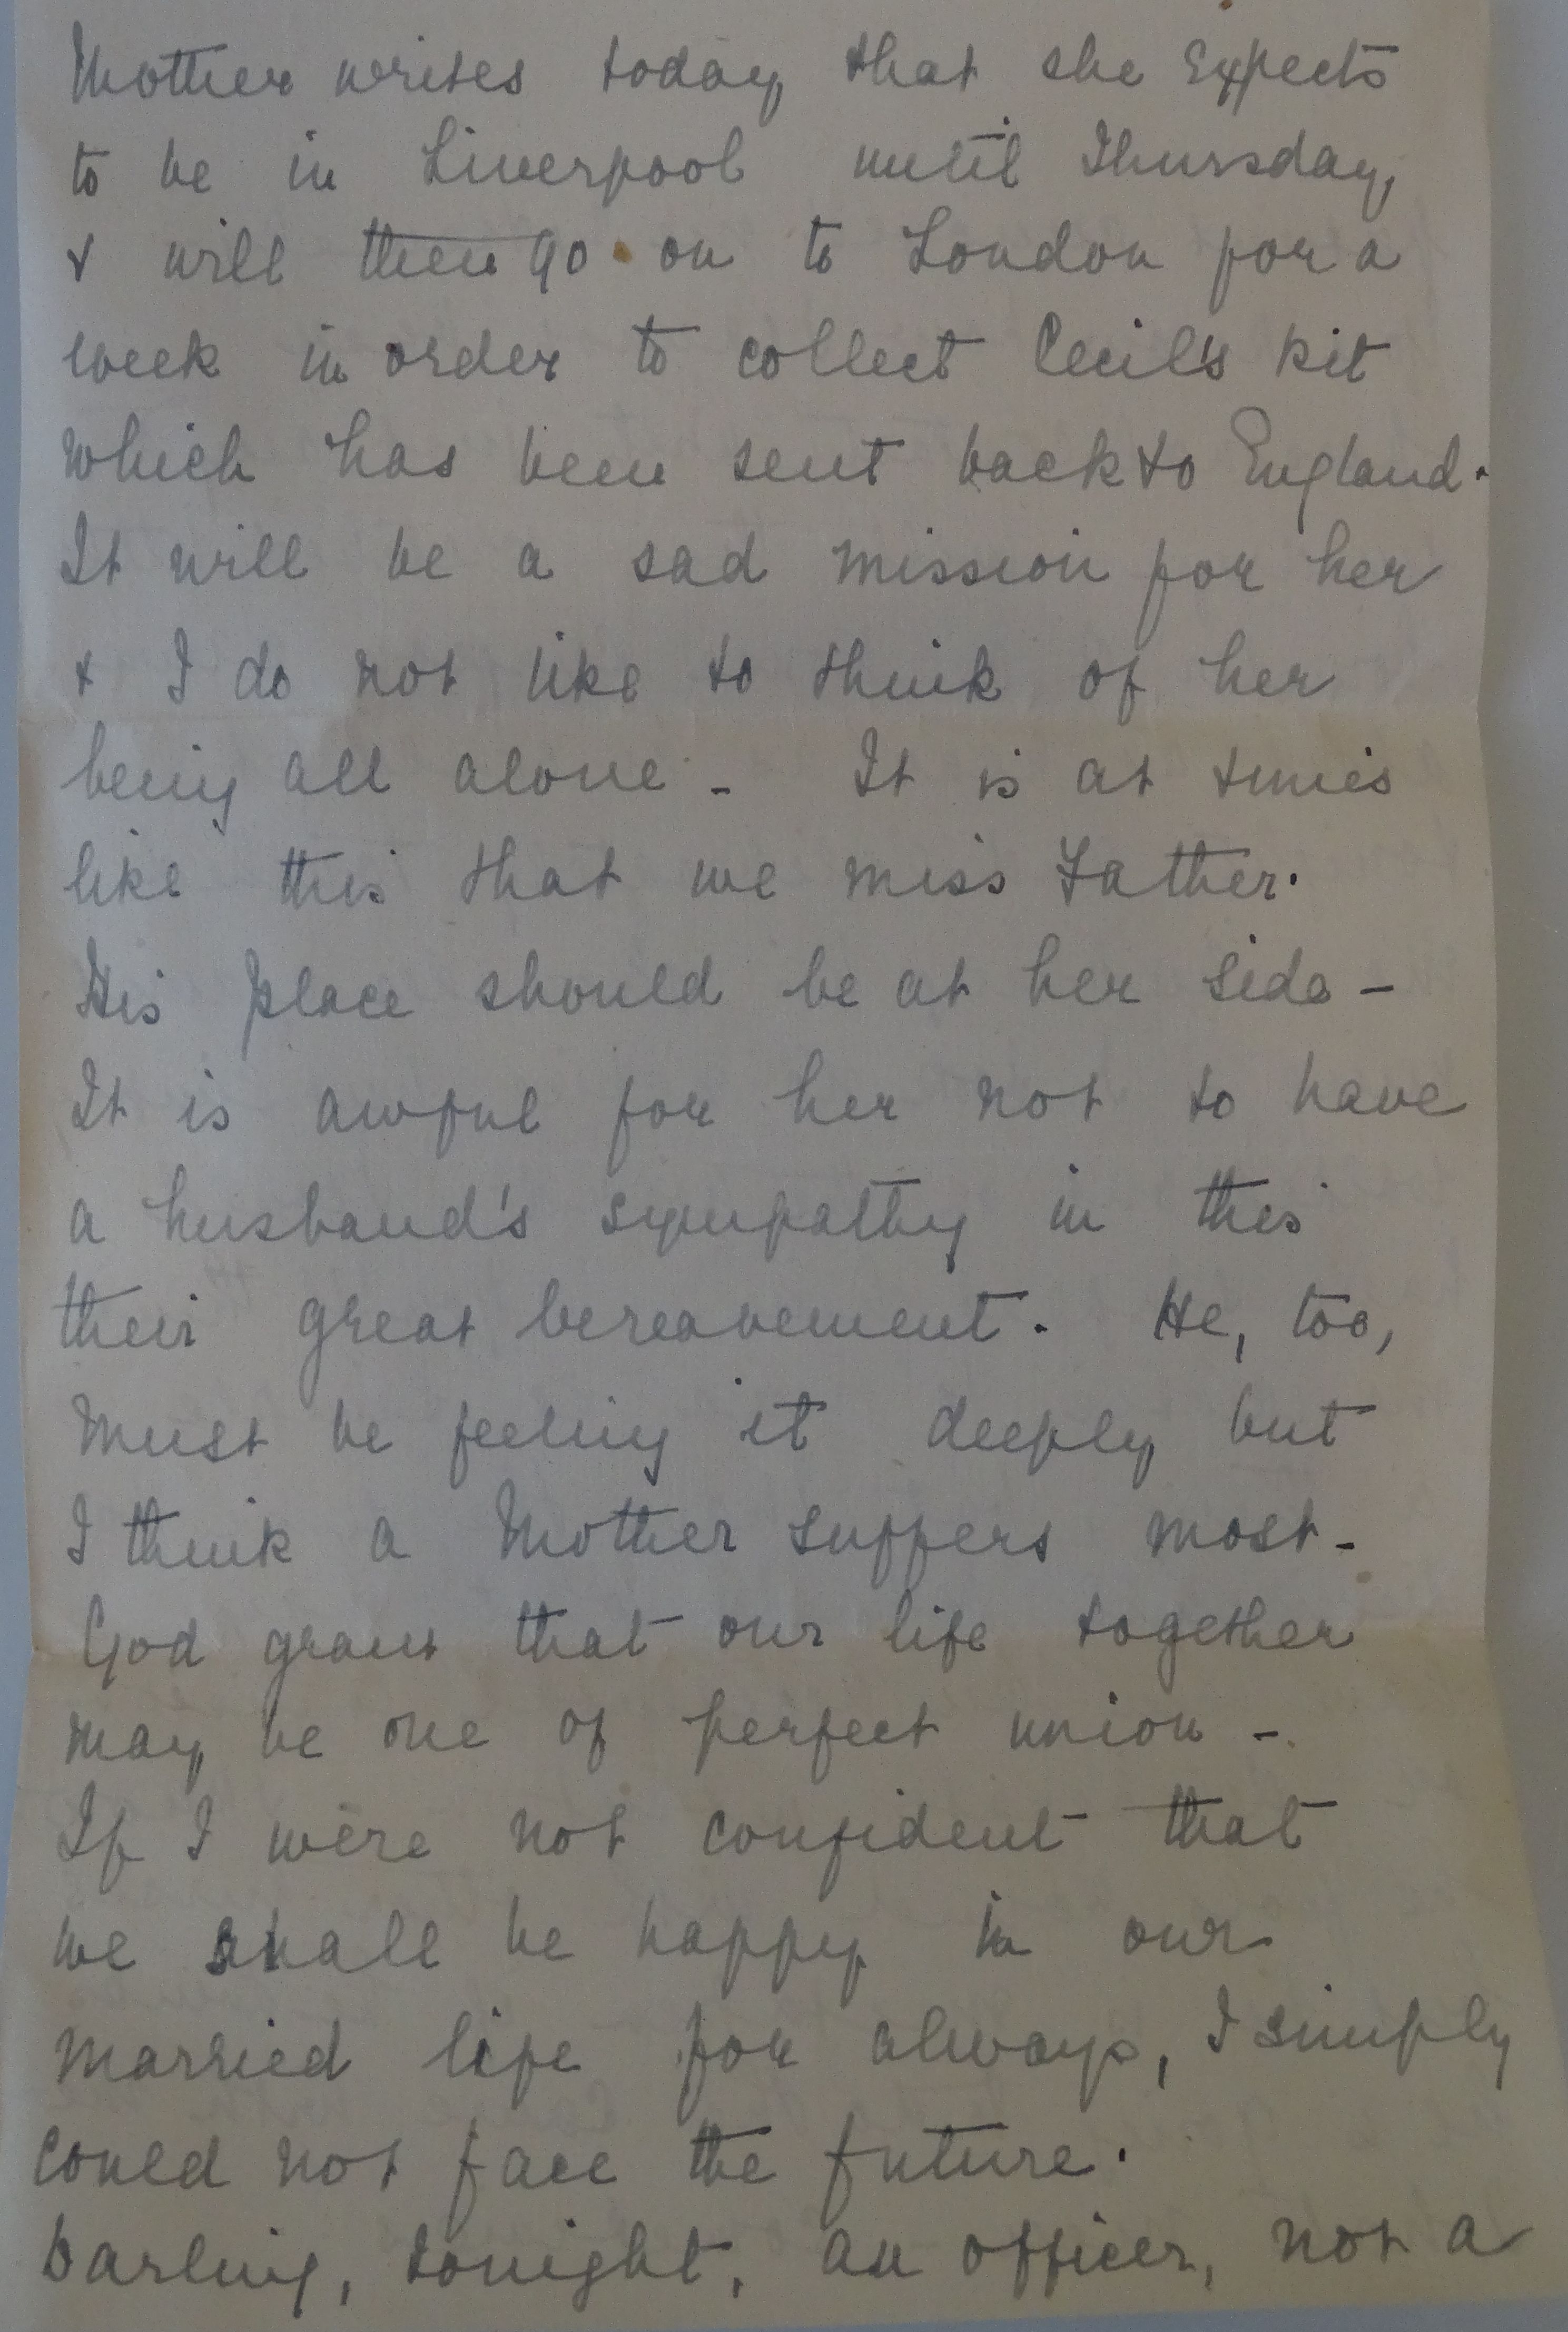 Mother writes today that she expects
to be in Liverpool until Thursday,
& will then go on to London for a
week in order to collect Cecil's kit
which has been sent back to England.
It will be a sad mission for her
& I do not like to think of her
being all alone - It is at times
like this that we miss Father.
His place should be at her side -
It is awful for her not to have
a husband's sympathy in this
their great bereavement. He, too,
must be feeling it deeply but
I think a Mother suffers most -
God grant that our life together
may be one of perfect union -
If I were not confident that
we shall be happy in our
married life for always, I simply
could not face the future.
Darling, tonight, an officer, not a